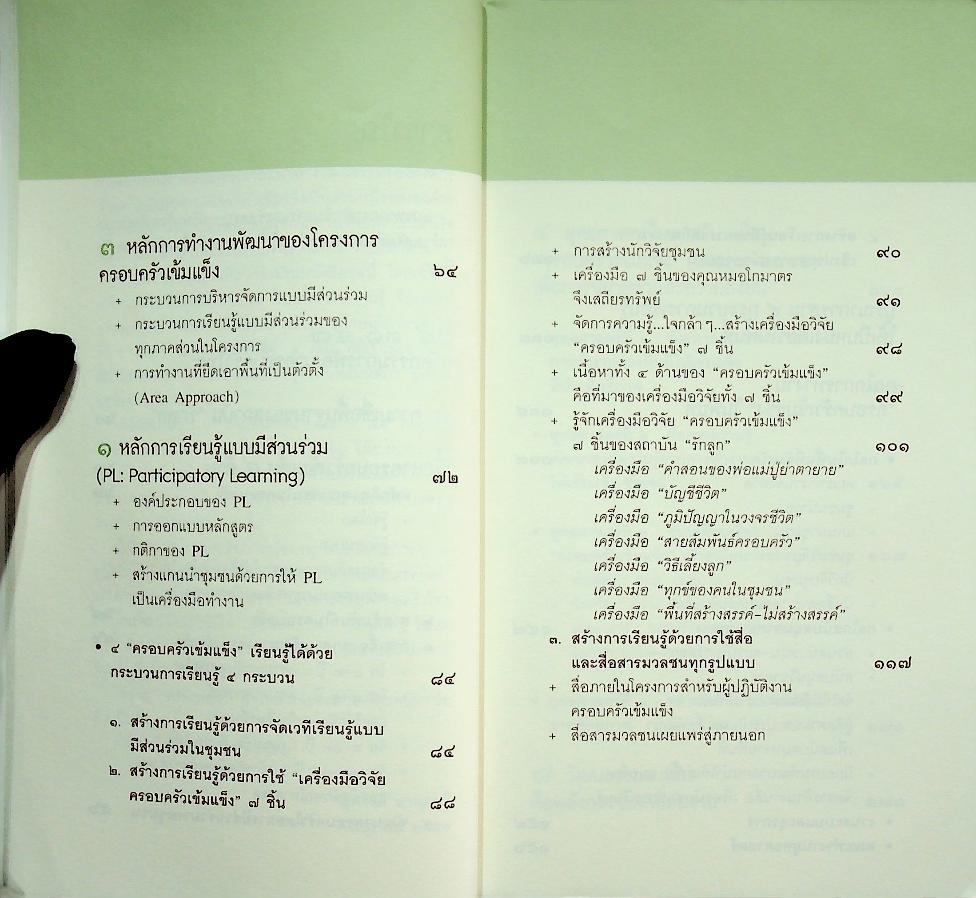 ๓ หลักการทำงานพัฒนาของโครงการ
ครอบครัวเข้มแข็ง ๖๔
+ กระบวนการบริหารจัดการแบบมีส่วนร่วม
+ กระบวนการเรียนรู้แบบมีส่วนร่วมของ
ทุกภาคส่วนในโครงการ
+ การทำงานที่ยึดเอาพื้นที่เป็นตัวตั้ง
(Area Approach)
๑ หลักการเรียนรู้แบบมีส่วนร่วม
(PL: Participatory Learning) ๗๒
+ องค์ประกอบของ PL
+ การออกแบบหลักสูตร
+ กติกาของ PL
+ สร้างแกนนำชุมชนด้วยการให้ PL
เป็นเครื่องมือทำงาน
• ๔ “ครอบครัวเข้มแข็ง” เรียนรู้ได้ด้วย
กระบวนการเรียนรู้ ๔ กระบวน ๘๔
๑. สร้างการเรียนรู้ด้วยการจัดเวทีเรียนรู้แบบ
มีส่วนร่วมในชุมชน ๘๔
๒. สร้างการเรียนรู้ด้วยการใช้ “เครื่องมือวิจัย
ครอบครัวเข้มแข็ง” ๗ ชิ้น ๘๘
+ การสร้างนักวิจัยชุมชน ๙๐
+ เครื่องมือ ๗ ชิ้นของคุณหมอโกมาตร
จึงเสถียรทรัพย์ ๙๑
+ จัดการความรู้...ใจกล้า ๆ...สร้างเครื่องมือวิจัย
“ครอบครัวเข้มแข็ง” ๗ ชิ้น ๙๘
+ เนื้อหาทั้ง ๔ ด้านของ “ครอบครัวเข้มแข็ง”
คือที่มาของเครื่องมือวิจัยทั้ง ๗ ชิ้น ๙๙
+ รู้จักเครื่องมือวิจัย “ครอบครัวเข้มแข็ง”
๗ ชิ้นของสถาบัน “รักลูก” ๑๐๑
เครื่องมือ “คำสอนของพ่อแม่ปู่ย่าตายาย”
เครื่องมือ “บัญชีชีวิต”
เครื่องมือ “ภูมิปัญญาในวงจรชีวิต”
เครื่องมือ “สายสัมพันธ์ครอบครัว”
เครื่องมือ “วิธีเลี้ยงลูก”
เครื่องมือ “ทุกข์ของคนในชุมชน”
เครื่องมือ “พื้นที่สร้างสรรค์-ไม่สร้างสรรค์”
๓. สร้างการเรียนรู้ด้วยการใช้สื่อ
และสื่อสารมวลชนทุกรูปแบบ ๑๑๗
+ สื่อภายในโครงการสำหรับผู้ปฏิบัติงาน
ครอบครัวเข้มแข็ง
+ สื่อสารมวลชนเผยแพร่สู่ภายนอก